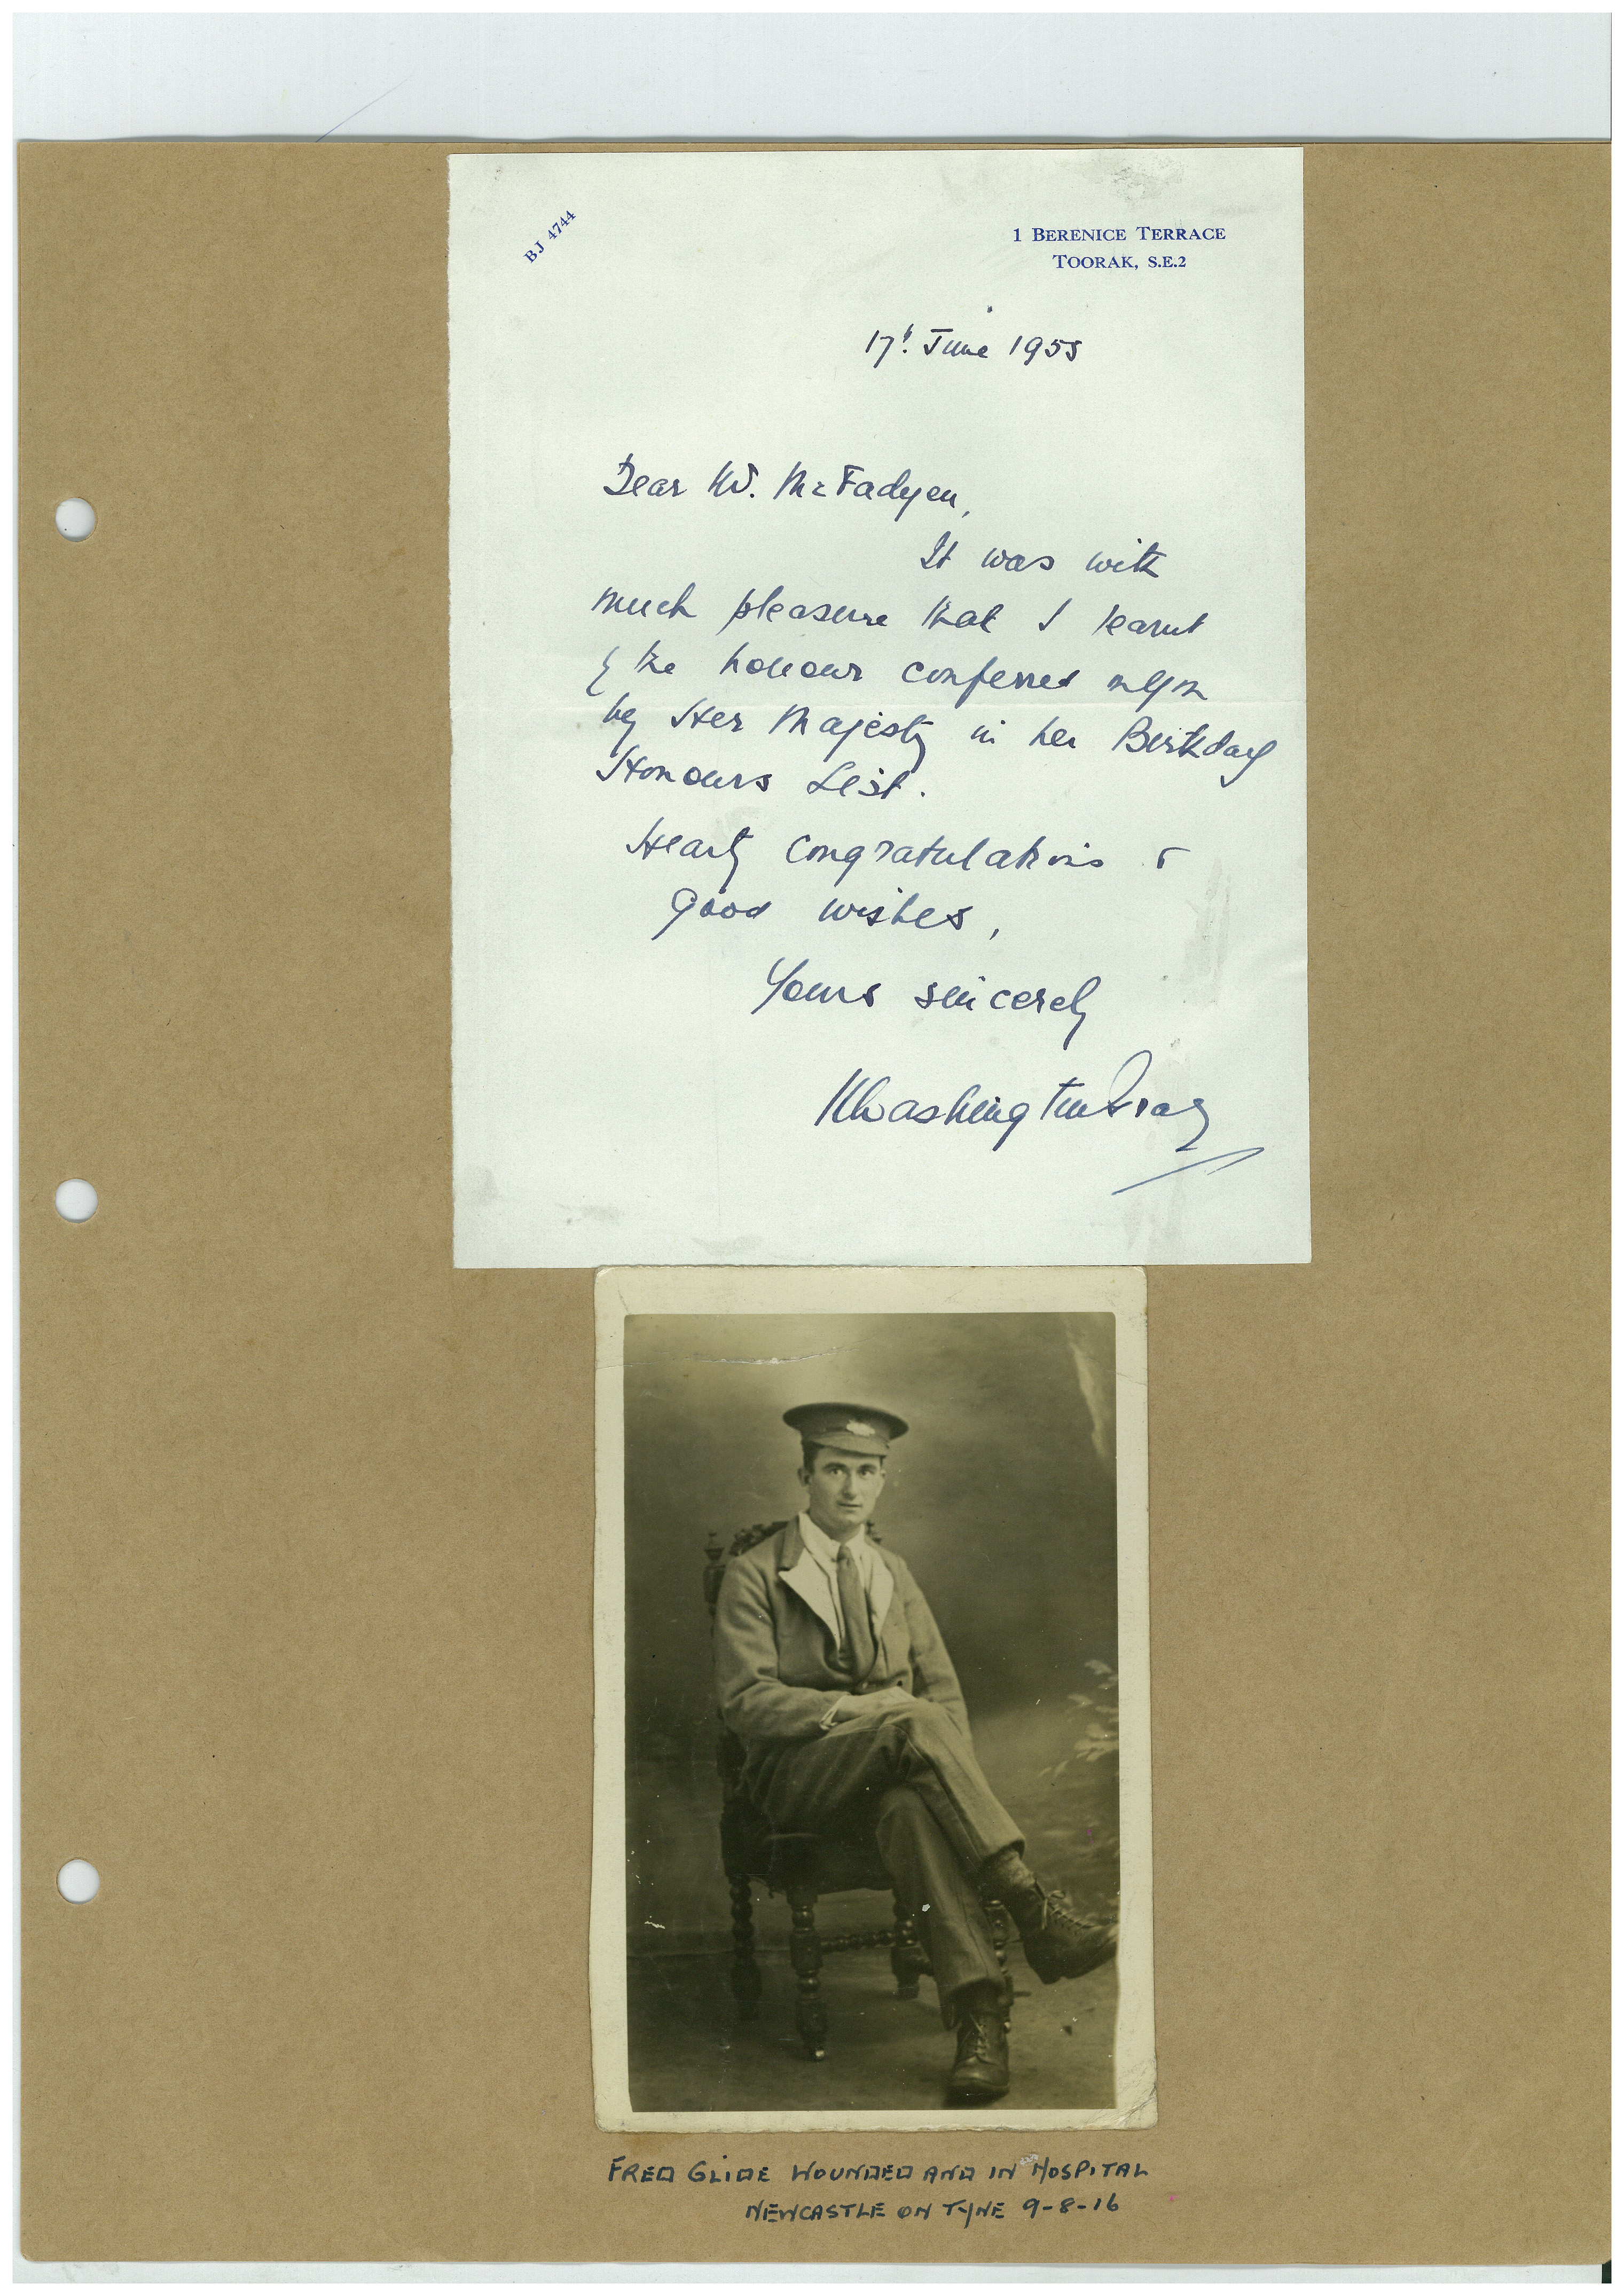 BJ 4744
1 BERENICE TERRACE
TOORAK, S.E.2
17th June 1955
Dear Mr. McFadyen,
It was with
much pleasure that I learnt
of the honour conferred on you
by Her Majesty in her Birthday
Honours List.
Hearty congratulations &
good wishes,
Yours sincerely
Washington Gray
FRED GLIDE WOUNDED AND IN HOSPITAL
NEWCASTLE ON TYNE 9-8-16